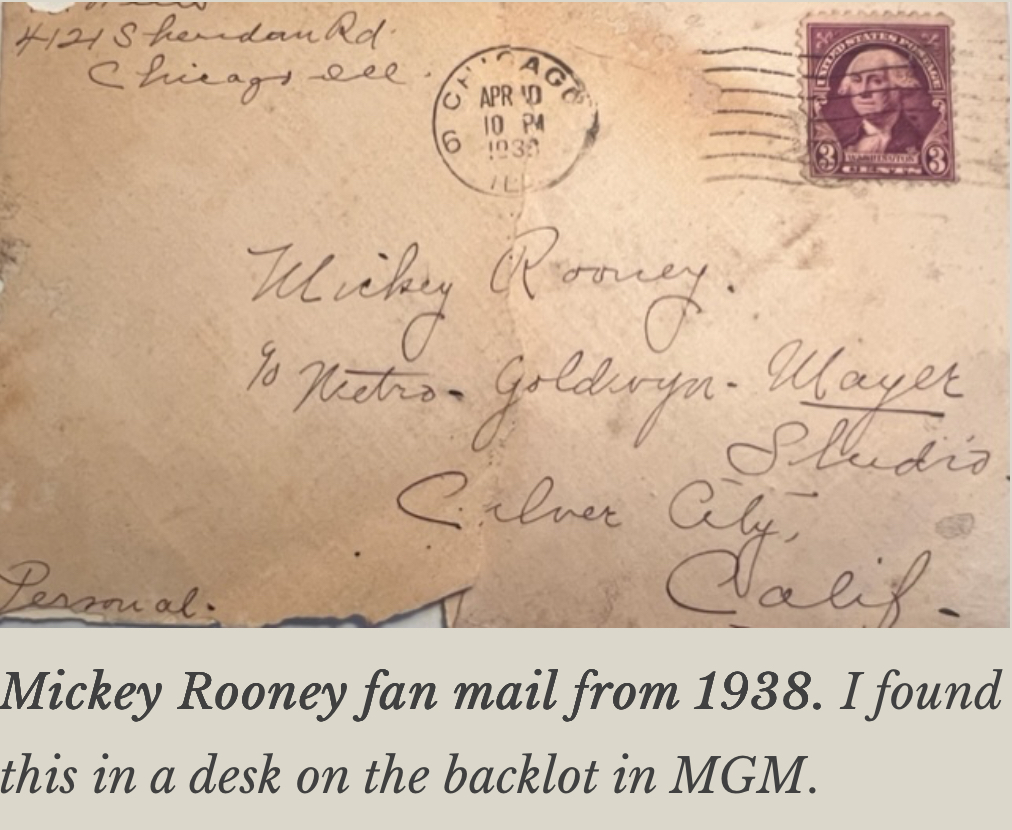 4121 Sheridan Rd.
Chicago Ill.
CHICAGO
APR 10
10 PM
6
UNITED STATES POSTAGE
3 WASHINGTON 3
CENTS
Mickey Rooney.
c/o Metro-Goldwyn-Mayer
Studio.
Culver City,
Calif.
Personal.
Mickey Rooney fan mail from 1938. I found
this in a desk on the backlot in MGM.